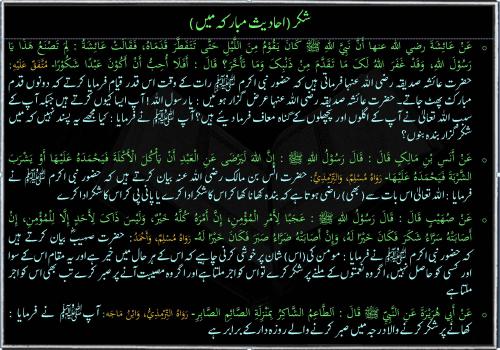 شکر (احادیث مبارکہ میں)
عَنْ عَائِشَةَ رضی الله عنها أَنَّ نَبِيَّ اللهِ ﷺ كَانَ يَقُوْمُ مِنَ اللَّيْلِ حَتَّى تَتَفَطَّرَ قَدَمَاهُ، فَقَالَتْ عَائِشَةُ: لِمَ تَصْنَعُ هَذَا يَا
رَسُوْلَ اللهِ، وَقَدْ غَفَرَ اللهُ لَکَ مَا تَقَدَّمَ مِنْ ذَنْبِکَ وَمَا تَأَخَّرَ؟ قَالَ: أَفَلَا أُحِبُّ أَنْ أَكُوْنَ عَبْدًا شَكُوْرًا. مُتَّفَقٌ عَلَيْهِ:
حضرت عائشہ صدیقہ رضی اللہ عنہا فرماتی ہیں کہ حضور نبی اکرم ﷺ رات کے وقت اس قدر قیام فرمایا کرتے کہ دونوں قدم
مبارک پھٹ جاتے۔ حضرت عائشہ صدیقہ رضی اللہ عنہا عرض گزار ہوئیں: یا رسول اللہ! آپ ایسا کیوں کرتے ہیں جبکہ آپ کے
سبب اللہ تعالیٰ نے آپ کے اگلوں اور پچھلوں کے گناہ معاف فرما دیئے ہیں؟ آپ ﷺ نے فرمایا: کیا مجھے یہ پسند نہیں کہ میں
شکر گزار بندہ بنوں؟
عَنْ أَنَسِ بْنِ مَالِکٍ قَالَ: قَالَ رَسُوْلُ اللهِ ﷺ: إِنَّ اللهَ لَيَرْضَى عَنِ الْعَبْدِ أَنْ يَأْكُلَ الْأَكْلَةَ فَيَحْمَدَهُ عَلَيْهَا أَوْ يَشْرَبَ
الشَّرْبَةَ فَيَحْمَدَهُ عَلَيْهَا- رَوَاهُ مُسْلِمٌ، وَالتِّرْمِذِيُّ: حضرت انس بن مالک رضی اللہ عنہ بیان کرتے ہیں کہ حضور نبی اکرم ﷺ نے
فرمایا: اللہ تعالیٰ اس بات سے (بھی) راضی ہوتا ہے کہ بندہ کھانا کھا کر اس کا شکر ادا کرے یا پانی پی کر اس کا شکر ادا کرے
عَنْ صُهَيْبٍ قَالَ: قَالَ رَسُوْلُ اللهِ ﷺ: عَجَبًا لِأَمْرِ الْمُؤْمِنِ، إِنَّ أَمْرَهُ كُلَّهُ خَيْرٌ، وَلَيْسَ ذَاکَ لِأَحَدٍ إِلَّا لِلْمُؤْمِنِ، إِنْ
أَصَابَتْهُ سَرَّاءُ شَكَرَ فَكَانَ خَيْرًا لَهُ، وَإِنْ أَصَابَتْهُ ضَرَّاءُ صَبَرَ فَكَانَ خَيْرًا لَهُ- رَوَاهُ مُسْلِمٌ، وَأَحْمَدُ: حضرت صہیب بیان کرتے ہیں
کہ حضور نبی اکرم ﷺ نے فرمایا: مومن کی (اس) شان پر خوشی کرنی چاہیے کہ اس کے ہر حال میں خیر ہے اور یہ مقام اس کے سوا
اور کسی کو حاصل نہیں، اگر وہ نعمتوں کے ملنے پر شکر کرے تو اس کو اجر ملتا ہے اور اگر وہ مصیبت آنے پر صبر کرے تب بھی اس کو اجر
ملتا ہے
عَنْ أَبِي هُرَيْرَةَ عَنِ النَّبِيِّ ﷺ قَالَ: اَلطَّاعِمُ الشَّاكِرُ بِمَنْزِلَةِ الصَّائِمِ الصَّابِرِ- رَوَاهُ التِّرْمِذِيُّ، وَابْنُ مَاجَه: آپ ﷺ نے فرمایا:
کھانے پر شکر کرنے والا درجہ میں صبر کرنے والے روزہ دار کے برابر ہے